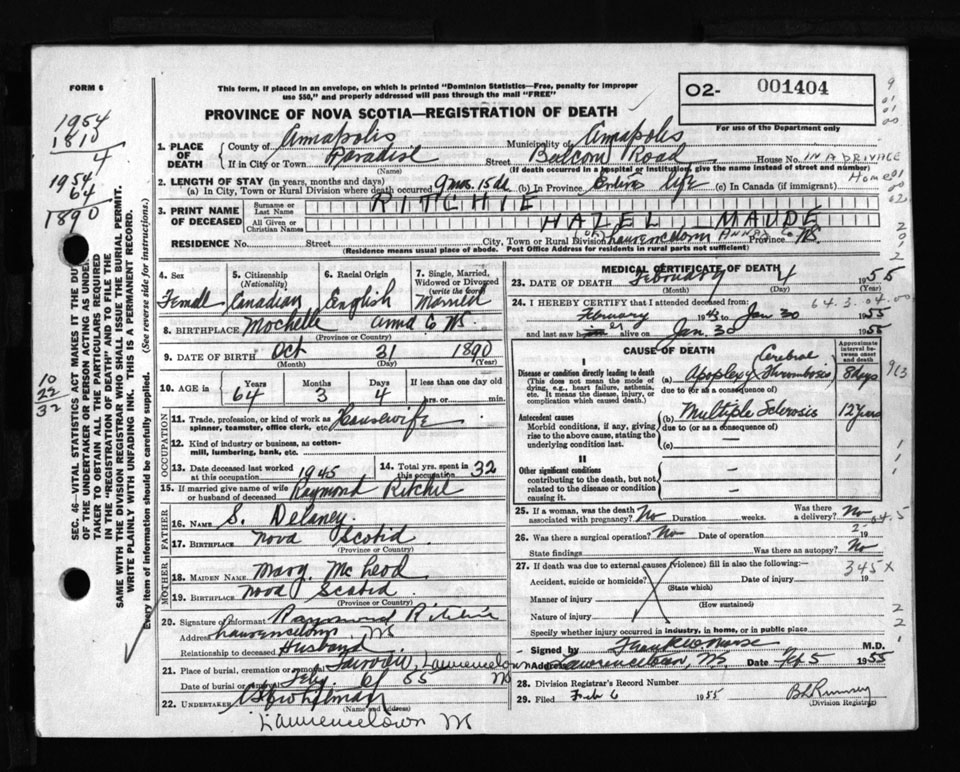 FORM 6
This form, if placed in an envelope, on which is printed "Dominion Statistics—Free, penalty for improper
use $50," and properly addressed will pass through the mail "FREE"
O2- 001404
For use of the Department only
PROVINCE OF NOVA SCOTIA—REGISTRATION OF DEATH
1954
1810
4
1954
64
1890
10
22
32
SEC. 46—VITAL STATISTICS ACT MAKES IT THE DUTY
OF THE UNDERTAKER OR PERSON ACTING AS UNDER-
TAKER TO OBTAIN ALL THE PARTICULARS REQUIRED
IN THE "REGISTRATION OF DEATH" AND TO FILE THE
SAME WITH THE DIVISION REGISTRAR WHO SHALL ISSUE THE BURIAL PERMIT.
WRITE PLAINLY WITH UNFADING INK. THIS IS A PERMANENT RECORD.
Every item of information should be carefully supplied. (See reverse side for instructions.)
1. PLACE OF DEATH
County of Annapolis Municipality of Annapolis
If in City or Town Paradise (Name) Street Balcom Road House No. IN A PRIVATE Home
(If death occurred in a hospital or institution, give the name instead of street and number)
2. LENGTH OF STAY (in years, months and days)
(a) In City, Town or Rural Division where death occurred 9 mos. 15 d (b) In Province Entire life (c) In Canada (if immigrant)
3. PRINT NAME OF DECEASED
Surname or Last Name RITCHIE
All Given or Christian Names HAZEL MAUDE
RESIDENCE No. Street City, Town or Rural Division Lawrencetown ANNAP. Co. Province N.S.
(Residence means usual place of abode. Post Office Address for residents in rural parts not sufficient)
4. Sex Female
5. Citizenship (Nationality) Canadian
6. Racial Origin English
7. Single, Married, Widowed or Divorced (write the word) Married
8. BIRTHPLACE Mochelle Anna Co NS.
(Province or Country)
9. DATE OF BIRTH Oct 31 1890
(Month) (Day) (Year)
10. AGE IN Years 64 Months 3 Days 4 If less than one day old
hrs. or min.
OCCUPATION
11. Trade, profession, or kind of work as
spinner, teamster, office clerk, etc. Housewife
12. Kind of industry or business, as cotton-
mill, lumbering, bank, etc.
13. Date deceased last worked
at this occupation 1945
14. Total yrs. spent in
this occupation 32
15. If married give name of wife
or husband of deceased Raymond Ritchie
FATHER
16. NAME S. Delaney
17. BIRTHPLACE Nova Scotia
(Province or Country)
MOTHER
18. MAIDEN NAME Mary McLeod
19. BIRTHPLACE Nova Scotia
(Province or Country)
20. Signature of informant Raymond Ritchie
Address Lawrencetown, NS
Relationship to deceased Husband
21. Place of burial, cremation or removal Fairview, Lawrencetown NS
Date of burial or removal Feby. 6 55
22. UNDERTAKER
(Name and Address)
Lawrencetown NS
MEDICAL CERTIFICATE OF DEATH
23. DATE OF DEATH February 4 1955
(Month) (Day)
64.3.04.00
24. I HEREBY CERTIFY that I attended deceased from:
February 1943 to Jan 30 1955
and last saw her alive on Jan. 30 1955
CAUSE OF DEATH
Approximate interval between onset and death
I
Disease or condition directly leading to death
(This does not mean the mode of dying, e.g., heart failure, asthenia, etc. It means the disease, injury, or complication which caused death.)
(a) Apoplexy Cerebral Thrombosis 8 days
due to (or as a consequence of)
Antecedent causes
Morbid conditions, if any, giving rise to the above cause, stating the underlying condition last.
(b) Multiple Sclerosis 12 years
due to (or as a consequence of)
(c) —
II
Other significant conditions
contributing to the death, but not related to the disease or condition causing it.
25. If a woman, was the death
associated with pregnancy? No Duration weeks. Was there
a delivery? No
26. Was there a surgical operation? No Date of operation 19
State findings Was there an autopsy? No
27. If death was due to external causes (violence) fill in also the following:—
345X
Accident, suicide or homicide? (State which) Date of injury 19
Manner of injury (How sustained)
Nature of injury
Specify whether injury occurred in industry, in home, or in public place
Signed by M.D.
Address Lawrencetown, NS Date Feb 5 1955
28. Division Registrar's Record Number
29. Filed Feb 6 1955
(Division Registrar)